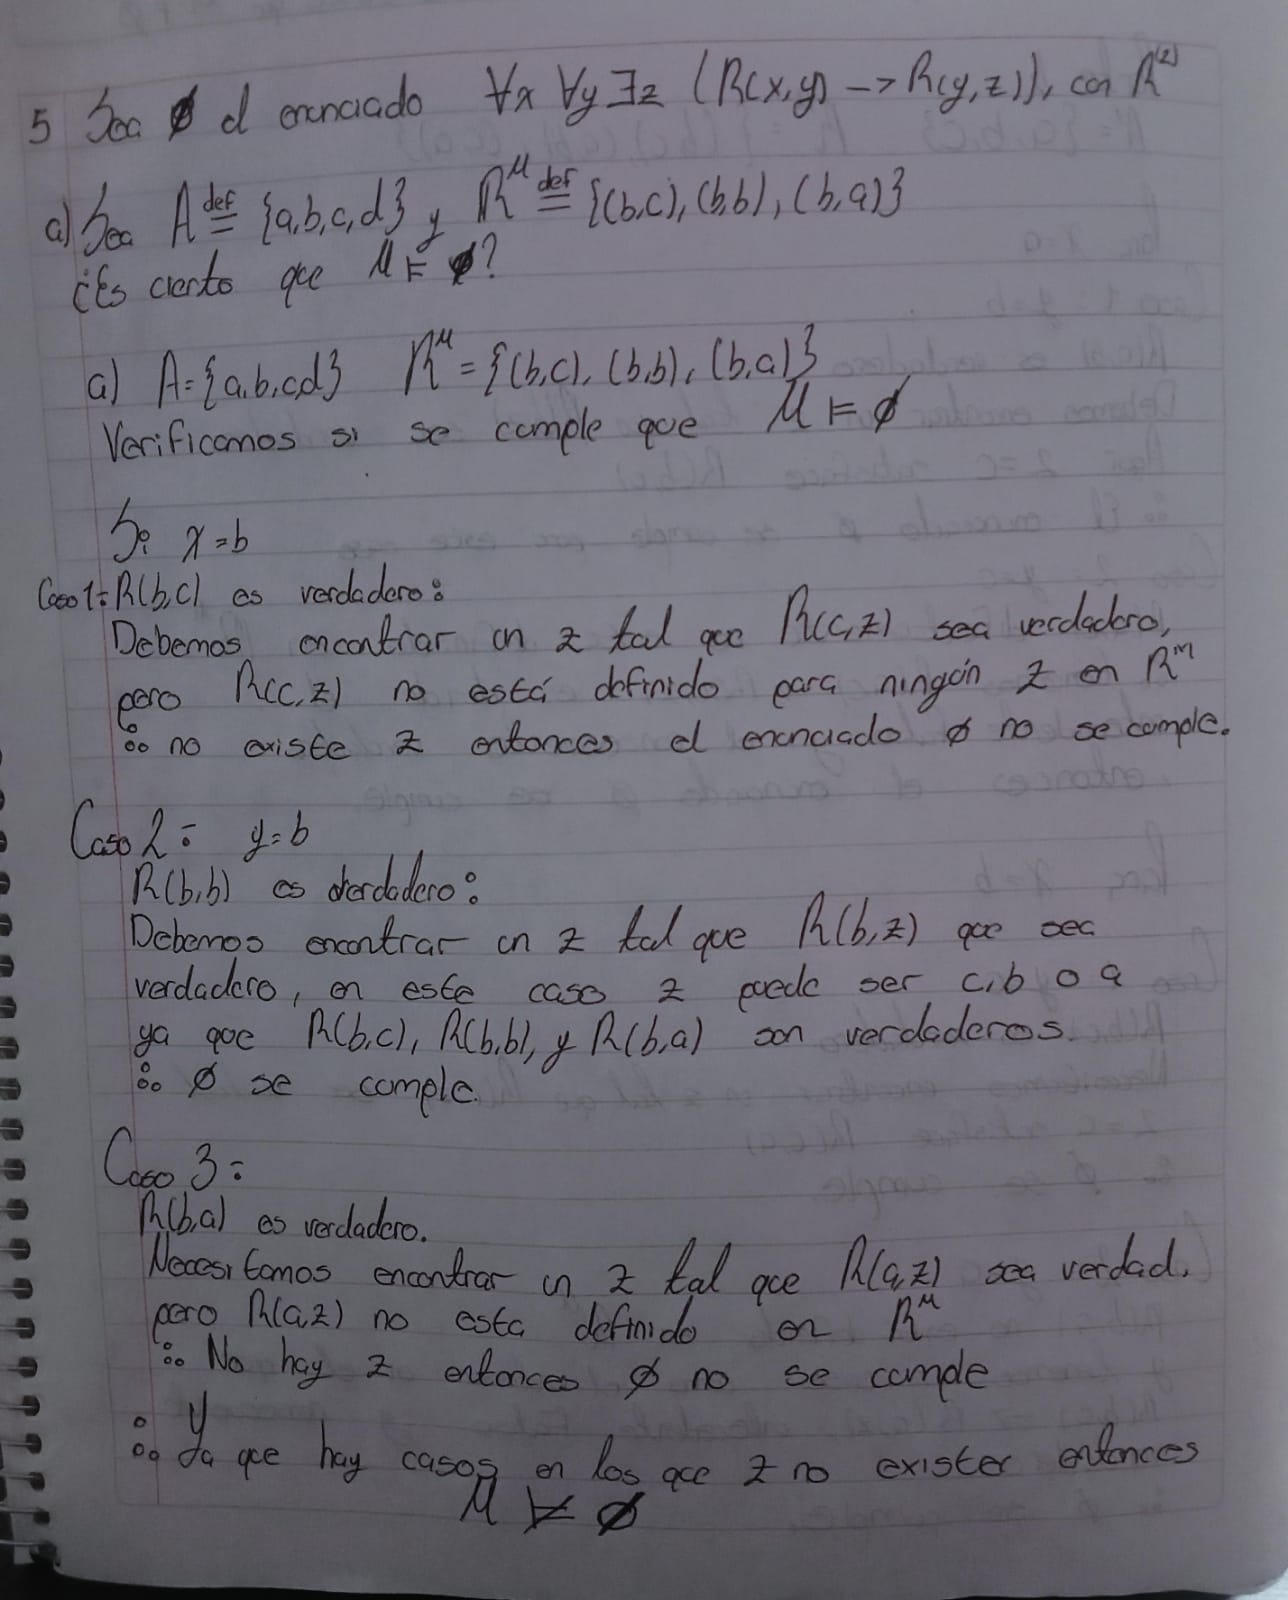 5 Sea ϕ el enunciado ∀x ∀y ∃z (R(x,y) -> R(y,z)), con R⁽²⁾
a) Sea A def= {a,b,c,d} y R^M def= {(b,c), (b,b), (b,a)}
¿Es cierto que M ⊨ ϕ?
a) A={a,b,c,d} R^M = {(b,c), (b,b), (b,a)}
Verificamos si se cumple que M ⊨ ϕ
Si x=b
Caso 1: R(b,c) es verdadero:
Debemos encontrar un z tal que R(c,z) sea verdadero,
pero R(c,z) no está definido para ningún z en R^M
∴ no existe z entonces el enunciado ϕ no se cumple.
Caso 2: y=b
R(b,b) es verdadero:
Debemos encontrar un z tal que R(b,z) que sea
verdadero, en este caso z puede ser c, b o a
ya que R(b,c), R(b,b), y R(b,a) son verdaderos.
∴ ϕ se cumple.
Caso 3:
R(b,a) es verdadero.
Necesitamos encontrar un z tal que R(a,z) sea verdad.
pero R(a,z) no esta definido en R^M
∴ No hay z entonces ϕ no se cumple
∴ Ya que hay casos en los que z no exister entonces
M ⊭ ϕ